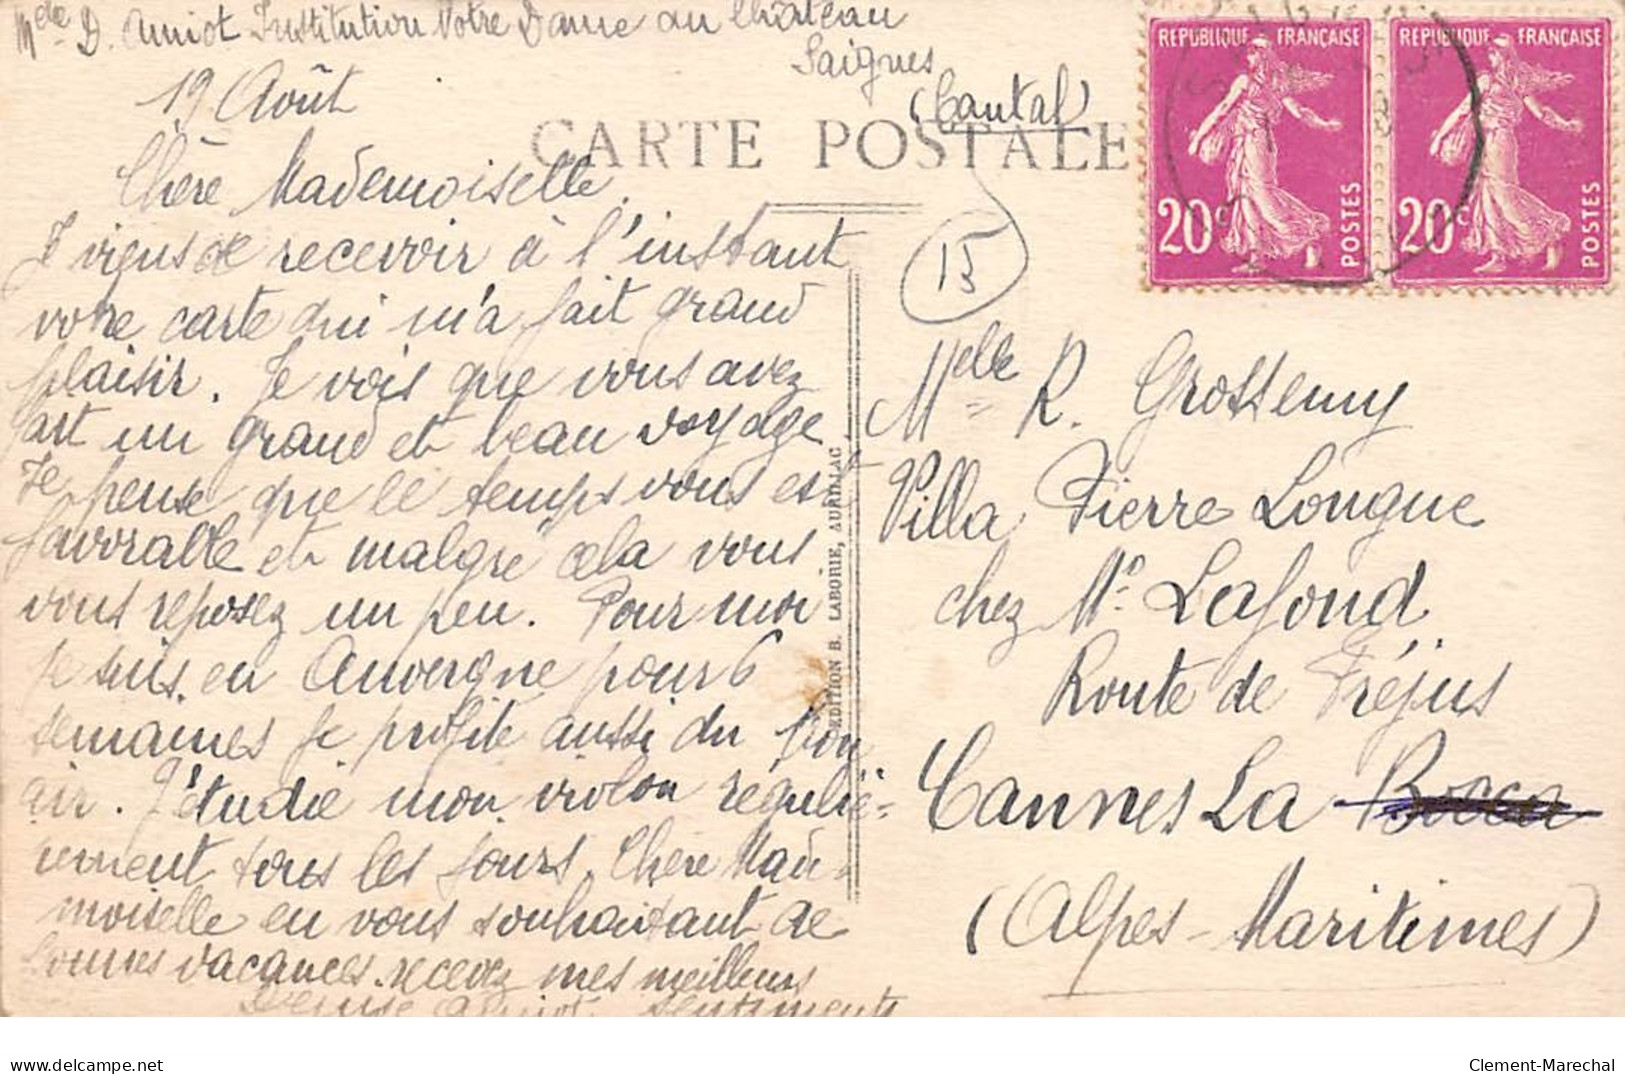 Melle D. Amiot Institution Notre Dame du Château
Saignes
(Cantal)
19 Août
CARTE POSTALE
Chère Mademoiselle,
Je viens de recevoir à l'instant
votre carte qui m'a fait grand
plaisir. Je vois que vous avez
fait un grand et beau voyage
Je pense que le temps vous est
favorable et malgré cela vous
vous reposez un peu. Pour moi
je suis en Auvergne pour 6
semaines je profite aussi du bon
air. J'étudie mon violon réguliè=
rement tous les jours. Chère Made-
moiselle en vous souhaitant de
bonnes vacances recevez mes meilleurs
Denise Amiot sentiments
EDITION B. LABORIE, AURILLAC
REPUBLIQUE FRANÇAISE
20c
POSTES
REPUBLIQUE FRANÇAISE
20c
POSTES
15
Melle R. Grosseuny
Villa Pierre Longue
chez Mr Lafond
Route de Fréjus
Cannes La Bocca
(Alpes-Maritimes)
www.delcampe.net
Clement-Marechal